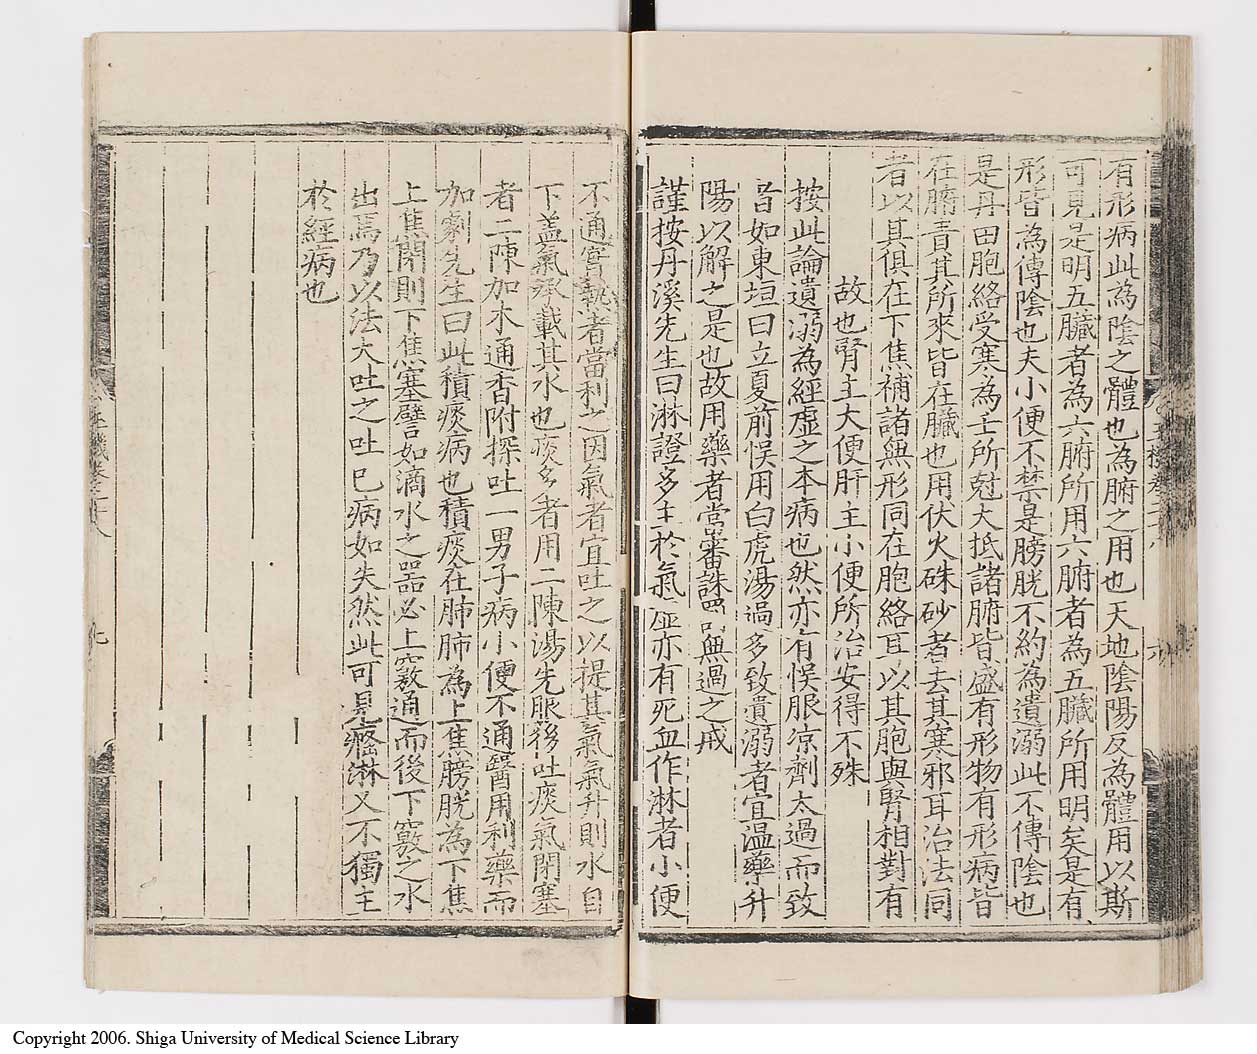 有形病此為陰之體也為腑之用也天地陰陽反為體用以斯
可見是明五臟者為六腑所用六腑者為五臟所用明矣是有
形皆為傳陰也夫小便不禁是膀胱不約為遺溺此不傳陰也
是丹田胞絡受寒為壬所尅大抵諸腑皆盛有形物有形病皆
在腑責其所來皆在臟也用伏火硃砂者去其寒邪耳治法同
者以其俱在下焦補諸無形同在胞絡耳以其胞與腎相對有
故也腎主大便肝主小便所治安得不殊
按此論遺溺為經虛之本病也然亦有悮服凉劑太過而致
者如東垣曰立夏前悮用白虎湯過多致遺溺者宜温藥升
陽以解之是也故用藥者當審誅罰無過之戒
謹按丹溪先生曰淋證多主於氣虛亦有死血作淋者小便
不通實熱者當利之因氣者宜吐之以提其氣氣升則水自
下盖氣承載其水也痰多者用二陳湯先服後吐痰氣閉塞
者二陳加木通香附探吐一男子病小便不通醫用利藥而
加劇先生曰此積痰病也積痰在肺肺為上焦膀胱為下焦
上焦閉則下焦塞譬如滴水之器必上竅通而後下竅之水
出焉乃以法大吐之吐已病如失然此可見癃淋又不獨主
於經病也